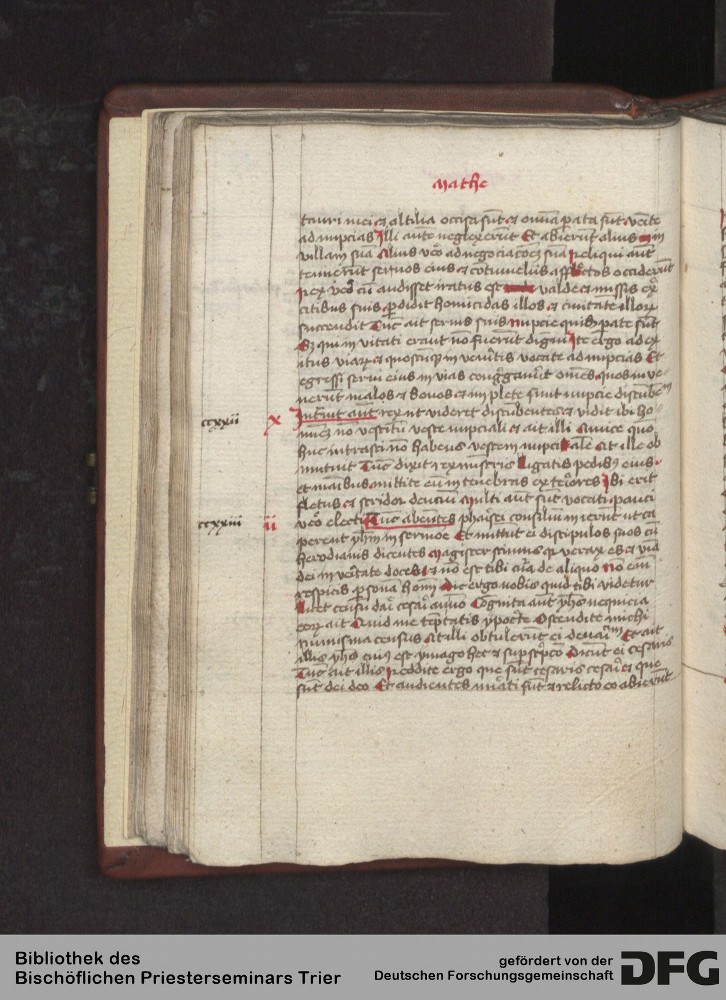 Mathe
tauri mei et altilia occisa sūt et om̄ia pata sūt venite
ad nupcias Illi aut̄ neglexerūt Et abierūt alius in
villam suā Alius v̄o ad negociacōēz suā reliqui aut̄
tenuerūt seruos eius et cōtumeliis affectos occiderūt
rex v̄o cū audisset iratus est valde et missis ex̄
citibus suis ꝑdidit homicidas illos et ciuitatē illoꝝ
succendit Tūc ait seruis suis Nupcie quidē pate sūt
Sꝫ qui inuitati erant nō fuerūt digni Ite ergo ad ex
itus viaꝝ et quoscūqꝫ inuen̄itis vocate ad nupcias Et
egressi serui eius in vias congḡauerūt om̄es quos inue
nerūt malos et bonos et implete sunt nupcie discūben̄
ccxxii x Intrauit aut̄ rex vt videret discūbentes et vidit ibi ho
minē nō vestitū veste nupciali et ait illi Amice quo
huc intrasti nō habens vestem nupcialē At ille ob
mutuit Tūc dixit rex mīstris ligatis pedibꝫ eius
et manibus mittite eum in tenebras ext̓iores Ibi erit
fletus et stridor denciū Multi aut̄ sūt vocati pauci
ccxxiii ii v̄o electi Tūc abeūtes pharisei consiliū inierūt ut ca
perent yhm̄ in sermōe Et mittūt ei discipulos suos cū
herodianis dicentes Magister scimus qꝫ verax es et viā
dei in v̄itate doces et nō est tibi cura de aliquo Nō eni
respicis ꝑsonā homī Dic ergo nobis quid tibi videtur
Licet censū dari cesari an nō Cognita aut̄ yhs̄ nequicia
eoꝝ ait Quid me teptatis ypocrite Ostendite michi
numisma census At illi obtulerūt ei denariū Et ait
illis yhs̄ cuiꝰ est ymago hec et supscripcō Dicūt ei cesaris
Tūc ait illis reddite ergo que sūt cesaris cesari et que
sūt dei deo Et audientes mirati sūt et relicto eo abierūt
Bibliothek des
Bischöflichen Priesterseminars Trier
gefördert von der
Deutschen Forschungsgemeinschaft
DFG